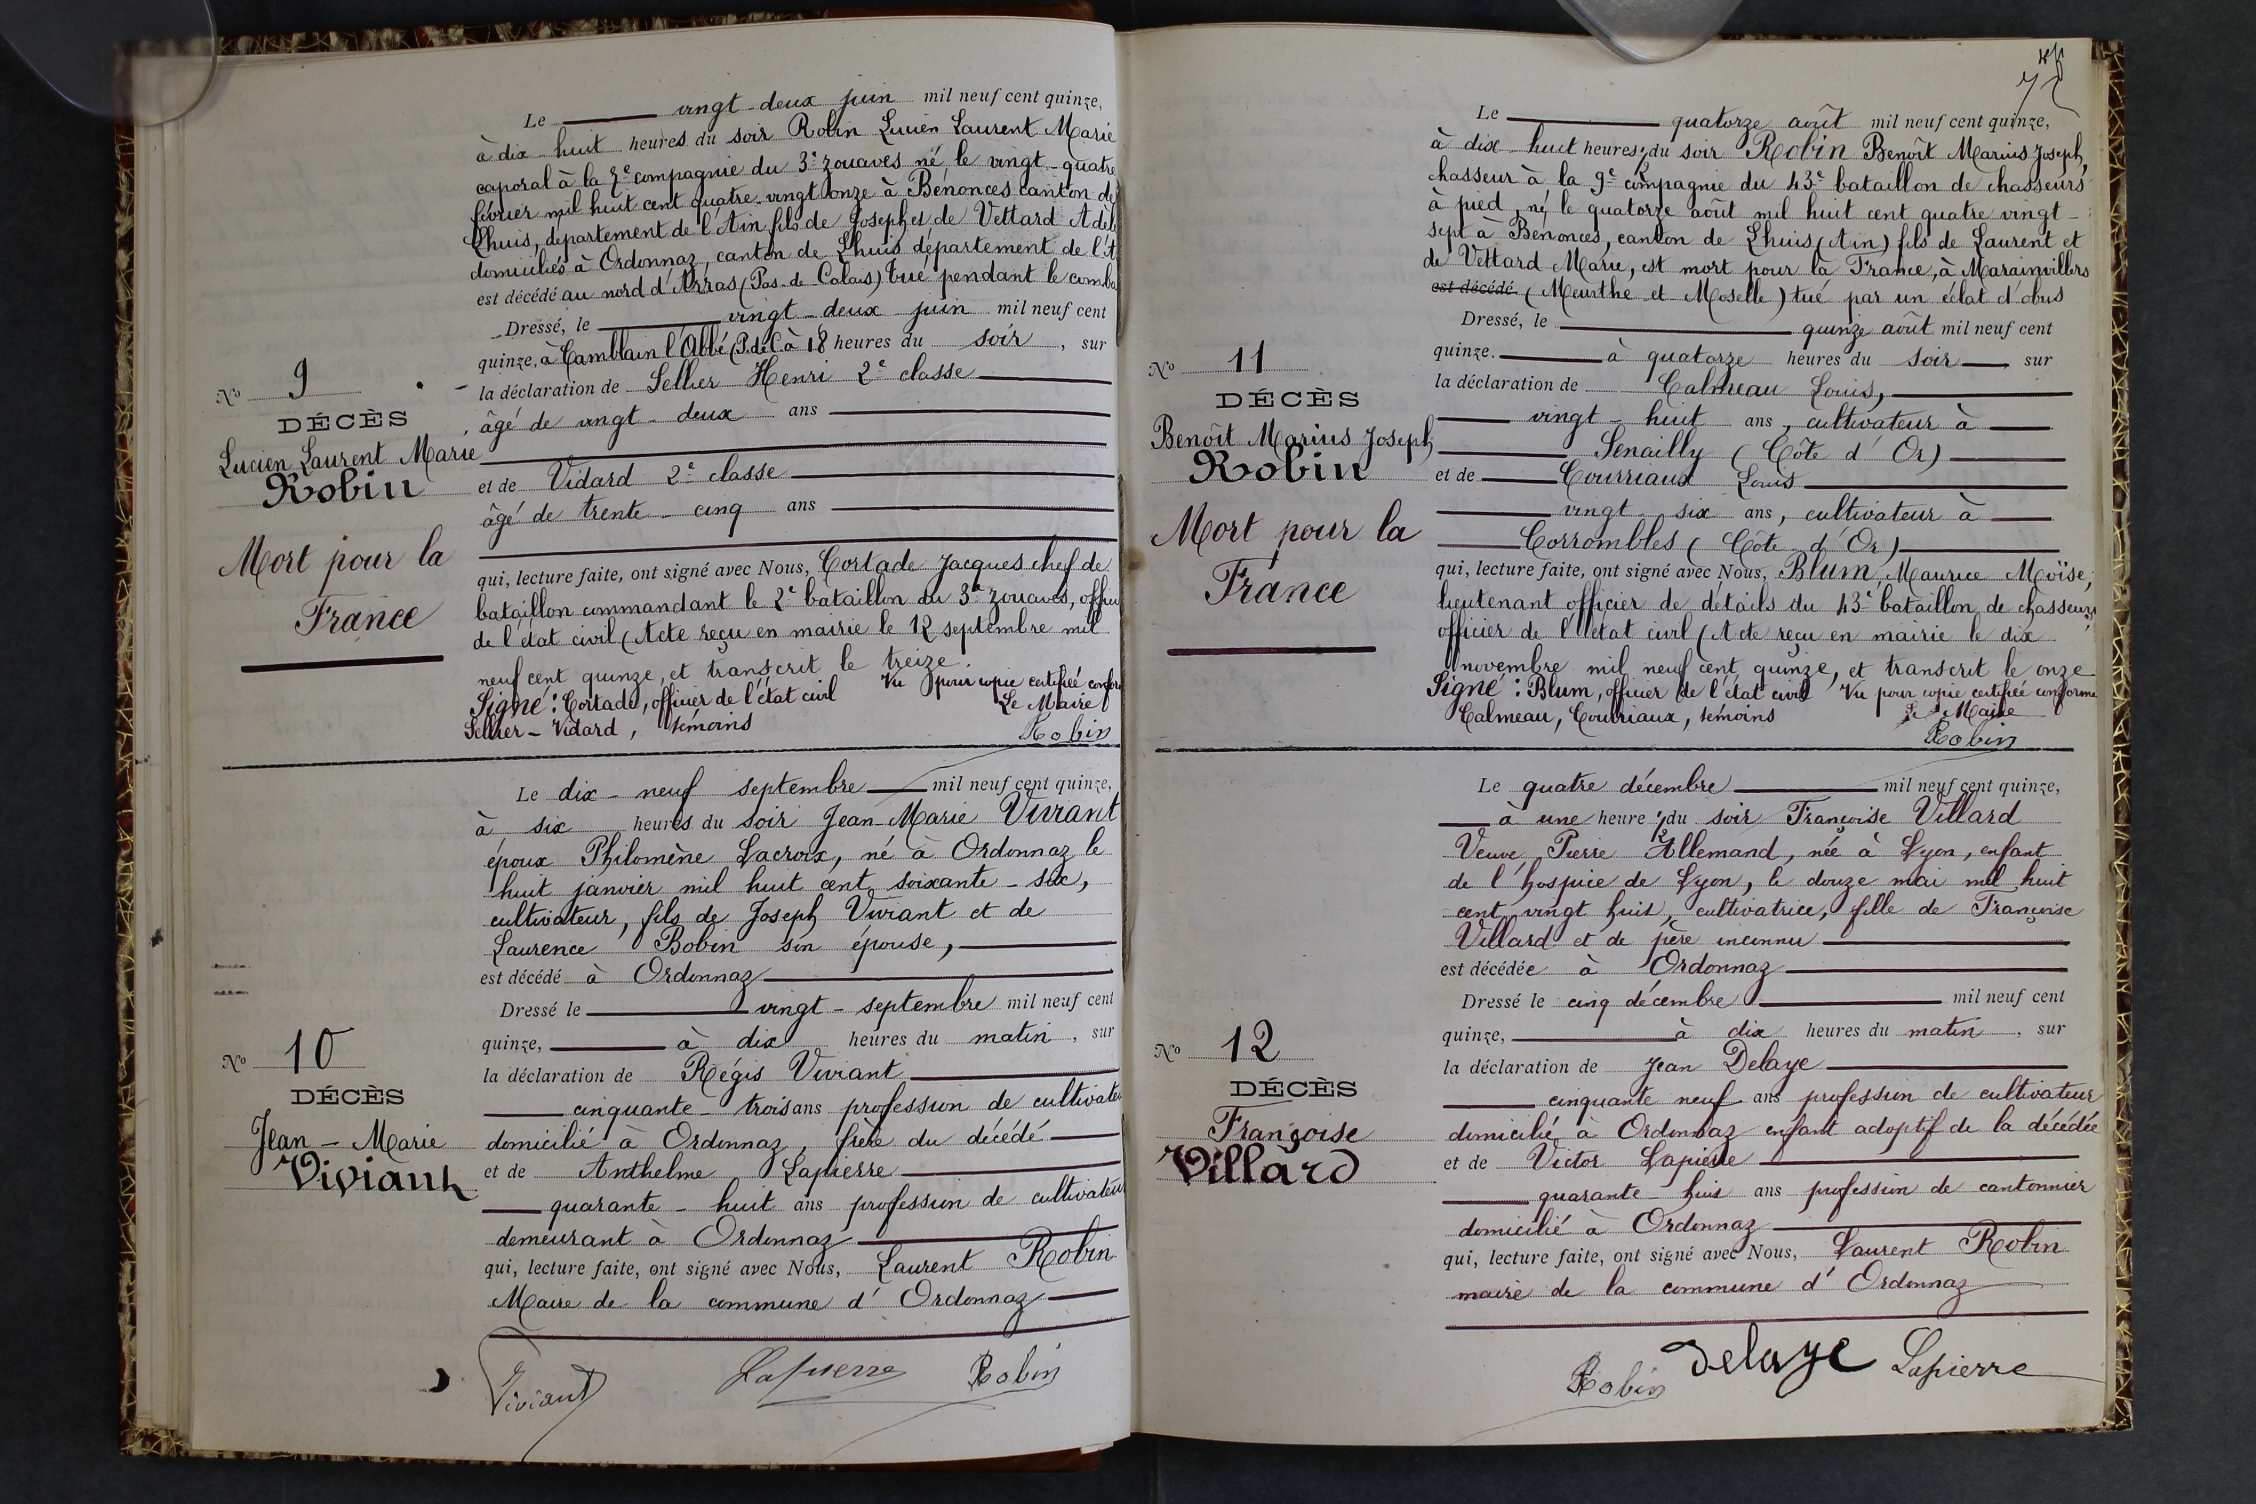 Le vingt-deux juin mil neuf cent quinze,
à dix huit heures du soir Robin Lucien Laurent Marie
caporal à la compagnie du 3e zouaves né le vingt-quatre
février mil huit cent quatre-vingt onze à Bénonces canton de
Lhuis, département de l'Ain fils de Joseph et de Vettard Adèle
domiciliés à Ordonnaz, canton de Lhuis département de l'A
est décédé au nord d'Arras (Pas-de-Calais) tué pendant le comba
Dressé, le vingt-deux juin mil neuf cent
quinze, à Camblain l'Abbé (P.deC. à 18 heures du soir, sur
la déclaration de Sellier Henri 2e classe
âgé de vingt-deux ans
et de Vidard 2e classe
âgé de trente-cinq ans
qui, lecture faite, ont signé avec Nous, Cortade Jacques chef de
bataillon commandant le 2e bataillon du 3e zouaves, offici
de l'état civil (Acte reçu en mairie le 12 septembre mil
neuf cent quinze, et transcrit le treize.
Signé: Cortade, officier de l'état civil Vu pour copie certifiée confor
Sellier - Vidard, témoins Le Maire
Robin
No 9
DÉCÈS
Lucien Laurent Marie
Robin
Mort pour la
France
Le dix-neuf septembre mil neuf cent quinze,
à six heures du soir Jean-Marie Viviant
époux Philomène Lacroix, né à Ordonnaz le
huit janvier mil huit cent soixante-six,
cultivateur, fils de Joseph Viviant et de
Laurence Bobin son épouse,
est décédé à Ordonnaz
Dressé le vingt-septembre mil neuf cent
quinze, à dix heures du matin, sur
la déclaration de Régis Viviant
cinquante-trois ans profession de cultivateu
domicilié à Ordonnaz, frère du décédé
et de Anthelme Lapierre
quarante-huit ans profession de cultivateur
demeurant à Ordonnaz
qui, lecture faite, ont signé avec Nous, Laurent Robin
Maire de la commune d'Ordonnaz
Viviant Lapierre Robin
No 10
DÉCÈS
Jean-Marie
Viviant
Le quatorze août mil neuf cent quinze,
à dix-huit heures ½ du soir Robin Benoît Marius Joseph,
chasseur à la 9e compagnie du 43e bataillon de chasseurs
à pied, né le quatorze août mil huit cent quatre vingt-
sept à Bénonces, canton de Lhuis (Ain) fils de Laurent et
de Vettard Marie, est mort pour la France, à Marainvillers
est décédé (Meurthe et Moselle) tué par un éclat d'obus
Dressé, le quinze août mil neuf cent
quinze. à quatorze heures du soir sur
la déclaration de Calmeau Louis,
vingt-huit ans, cultivateur à
Senailly (Côte d'Or)
et de Courriaux Louis
vingt-six ans, cultivateur à
Corrombles (Côte d'Or)
qui, lecture faite, ont signé avec Nous, Blum, Maurice Moïse,
lieutenant officier de détails du 43e bataillon de chasseurs,
officier de l'état civil (Acte reçu en mairie le dix
novembre mil neuf cent quinze, et transcrit le onze
Signé: Blum, officier de l'état civil Vu pour copie certifiée conforme
Calmeau, Courriaux, témoins Le Maire
Robin
No 11
DÉCÈS
Benoît Marius Joseph
Robin
Mort pour la
France
Le quatre décembre mil neuf cent quinze,
à une heure ½ du soir Françoise Villard
Veuve Pierre Allemand, née à Lyon, enfant
de l'hospice de Lyon, le douze mai mil huit
cent vingt huit, cultivatrice, fille de Françoise
Villard et de père inconnu
est décédée à Ordonnaz
Dressé le cinq décembre mil neuf cent
quinze, à dix heures du matin, sur
la déclaration de Jean Delaye
cinquante neuf ans profession de cultivateur
domicilié à Ordonnaz enfant adoptif de la décédée
et de Victor Lapierre
quarante-huit ans profession de cantonnier
domicilié à Ordonnaz
qui, lecture faite, ont signé avec Nous, Laurent Robin
maire de la commune d'Ordonnaz
Robin Delaye Lapierre
No 12
DÉCÈS
Françoise
Villard